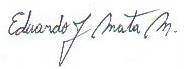 Eduardo J Mata M.